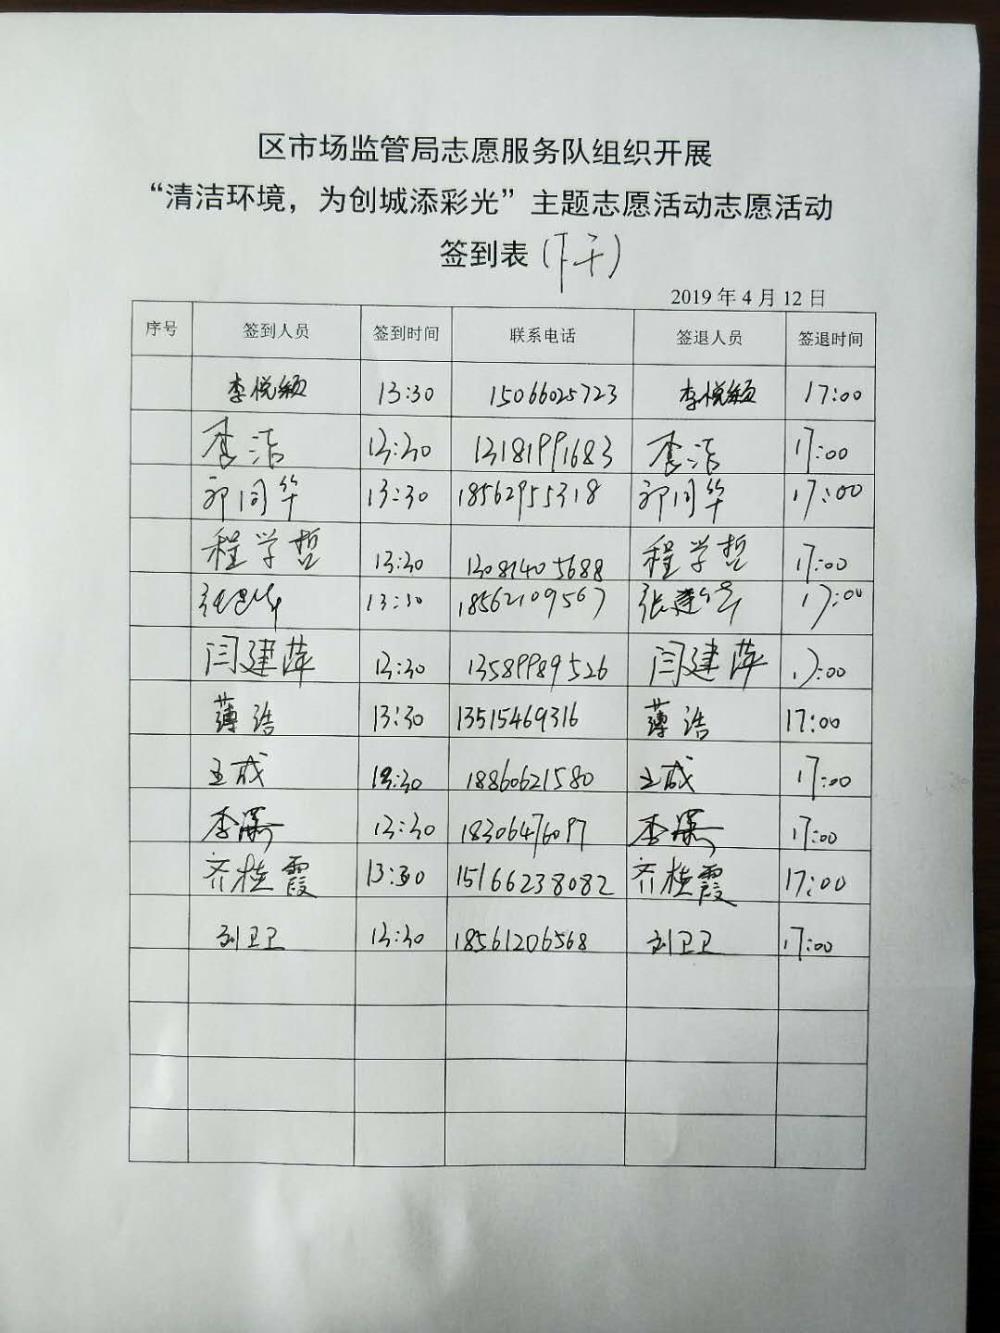 区市场监管局志愿服务队组织开展
“清洁环境，为创城添彩光”主题志愿活动志愿活动
签到表（下午）
2019年4月12日
序号 签到人员 签到时间 联系电话 签退人员 签退时间
李悦颖 13:30 15066025723 李悦颖 17:00
李洁 13:30 13181991683 李洁 17:00
郭同华 13:30 18562955318 郭同华 17:00
程学哲 13:30 13081405688 程学哲 17:00
13:30 18562109567 17:00
闫建萍 13:30 13589989526 闫建萍 17:00
薄浩 13:30 13515469316 薄浩 17:00
王成 13:30 18860621580 王成 17:00
李 13:30 18306476097 李 17:00
齐桂霞 13:30 15166238082 齐桂霞 17:00
刘卫卫 13:30 18561206568 刘卫卫 17:00